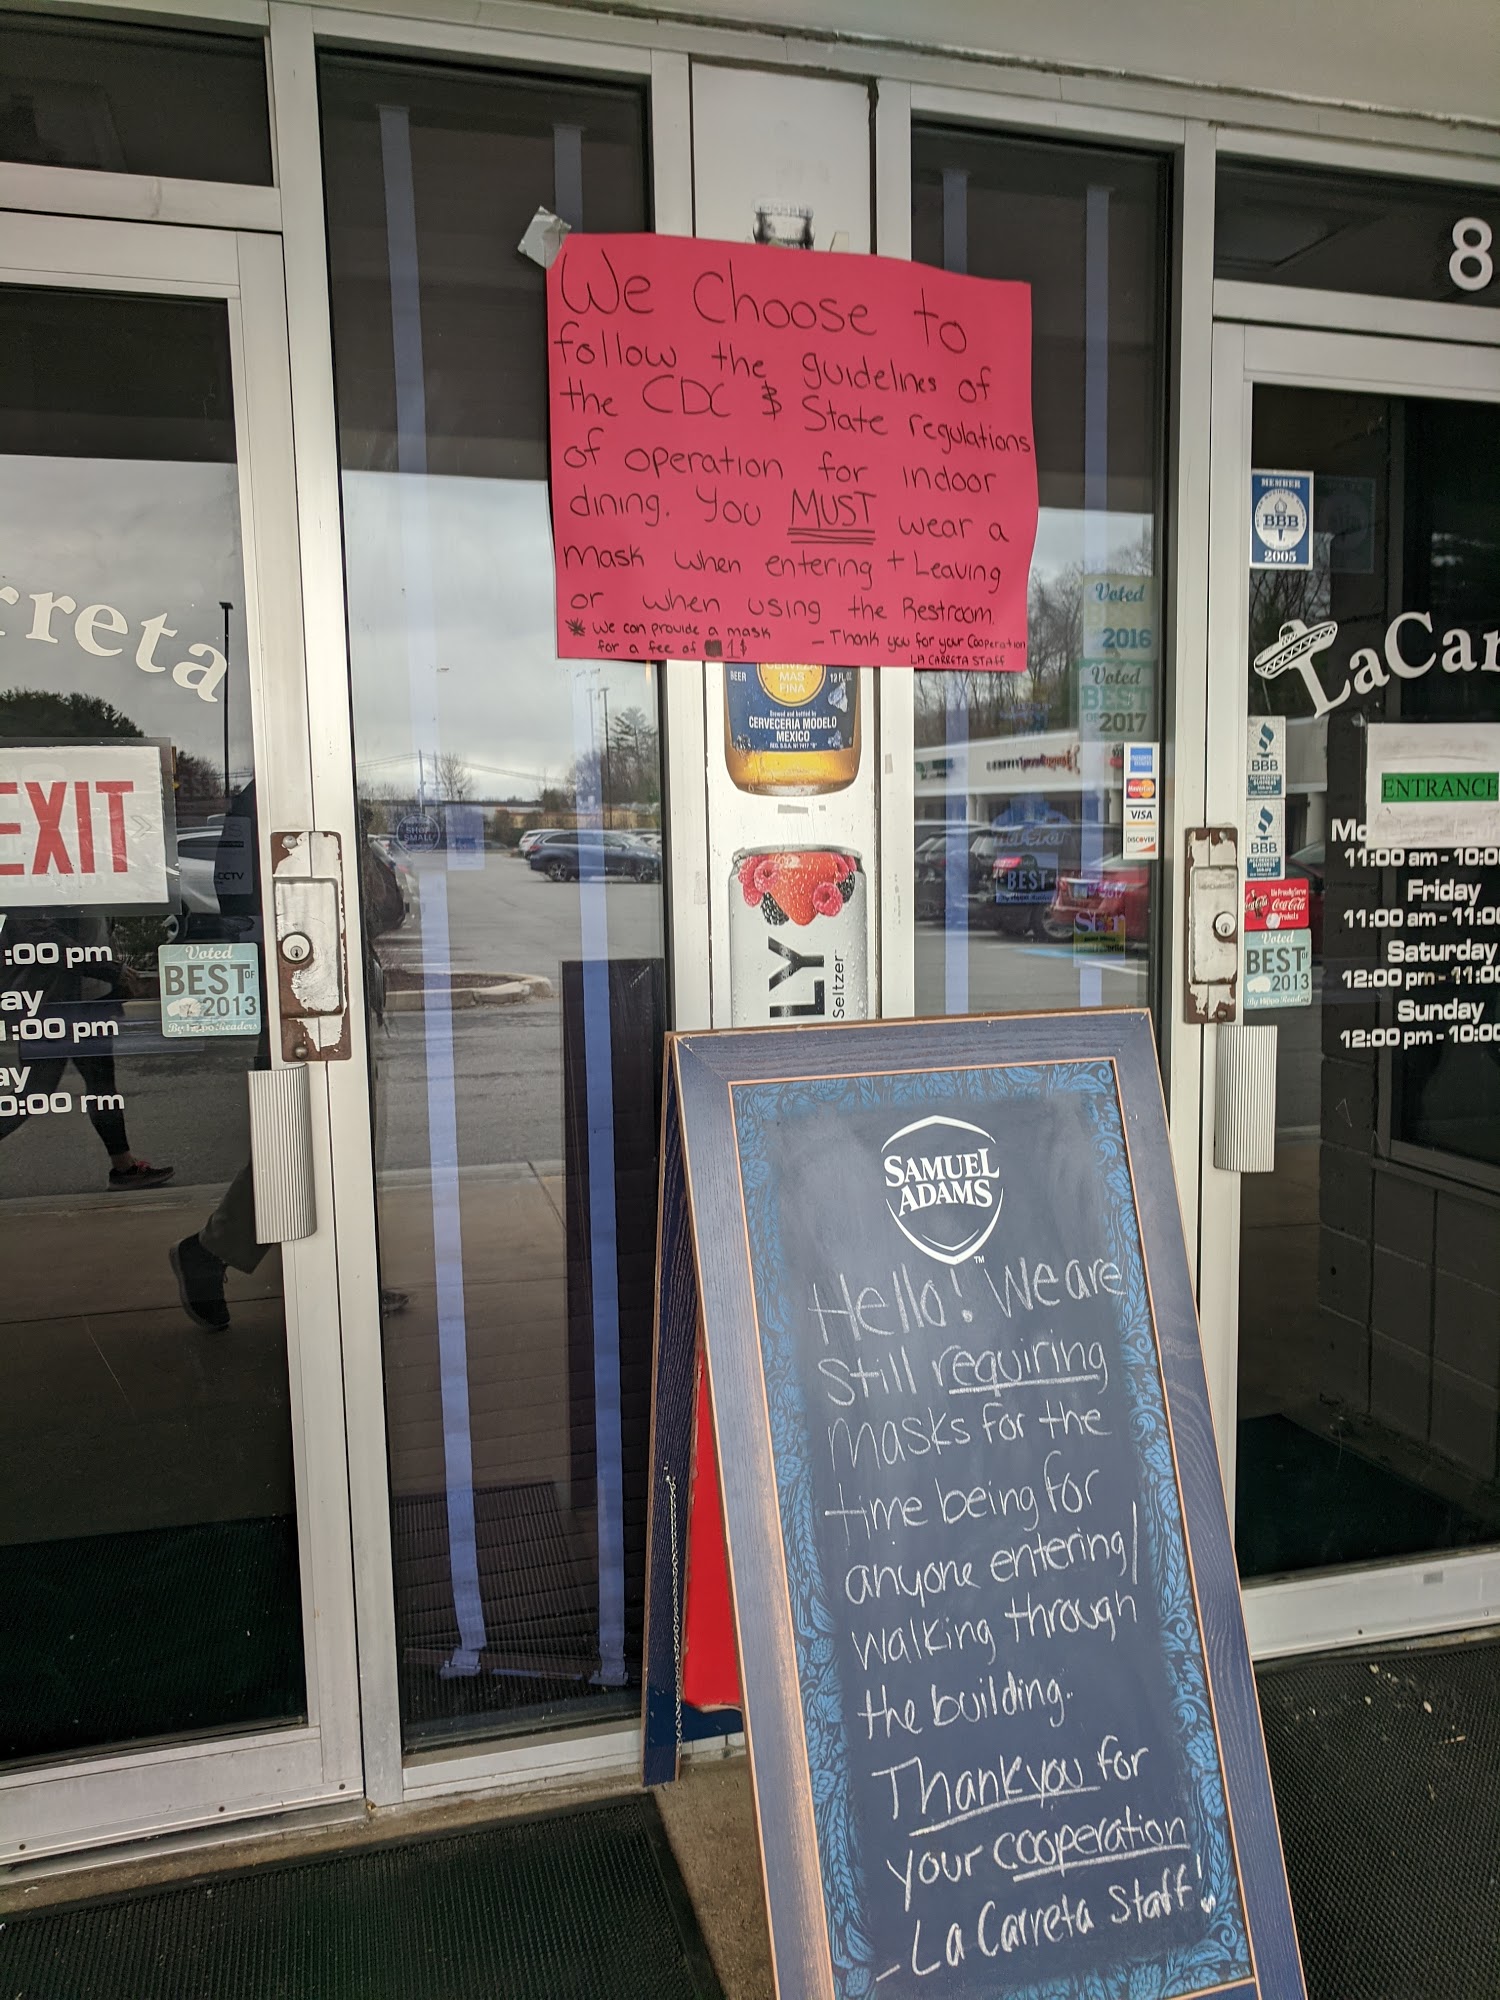 We Choose to
follow the guidelines of
the CDC & State regulations
of operation for indoor
dining. You MUST wear a
mask when entering + Leaving
or when using the Restroom.
* We can provide a mask
for a fee of 1$
- Thank you for your Cooperation
LA CARRETA STAFF
8
rreta
EXIT
:00 pm
ay
1:00 pm
ay
0:00 pm
Voted
BEST OF
2013
By Hippo Readers
CCTV
SHOP
SMALL
CERVEZA
MAS
FINA
BEER
12 FL. OZ
Brewed and bottled by
CERVECERIA MODELO
MEXICO
LY
Seltzer
Voted
2016
Voted
BEST
OF 2017
MasterCard
VISA
DISCOVER
BEST
MEMBER
BBB
2005
LaCar
BBB
BBB
We Proudly Serve
Coca-Cola
Products
Voted
BEST OF
2013
By Hippo Readers
ENTRANCE
Mo
11:00 am - 10:0
Friday
11:00 am - 11:0
Saturday
12:00 pm - 11:0
Sunday
12:00 pm - 10:0
SAMUEL
ADAMS
TM
Hello! We are
Still requiring
masks for the
time being for
anyone entering/
walking through
the building.
Thank you for
your cooperation
- La Carreta Staff!